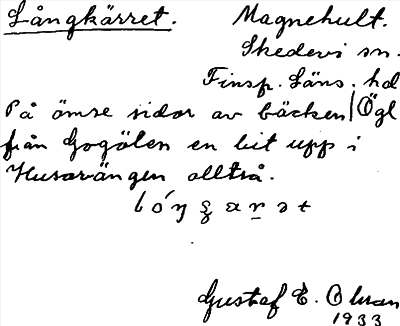 Långkärret. Magnehult.
Skedevi sn.
Finsp. Läns. hd
På ömse sidor av bäcken Ögl
från Gogölen en bit upp i
Husarängen alltså.
Gustaf E. Olsson
1933